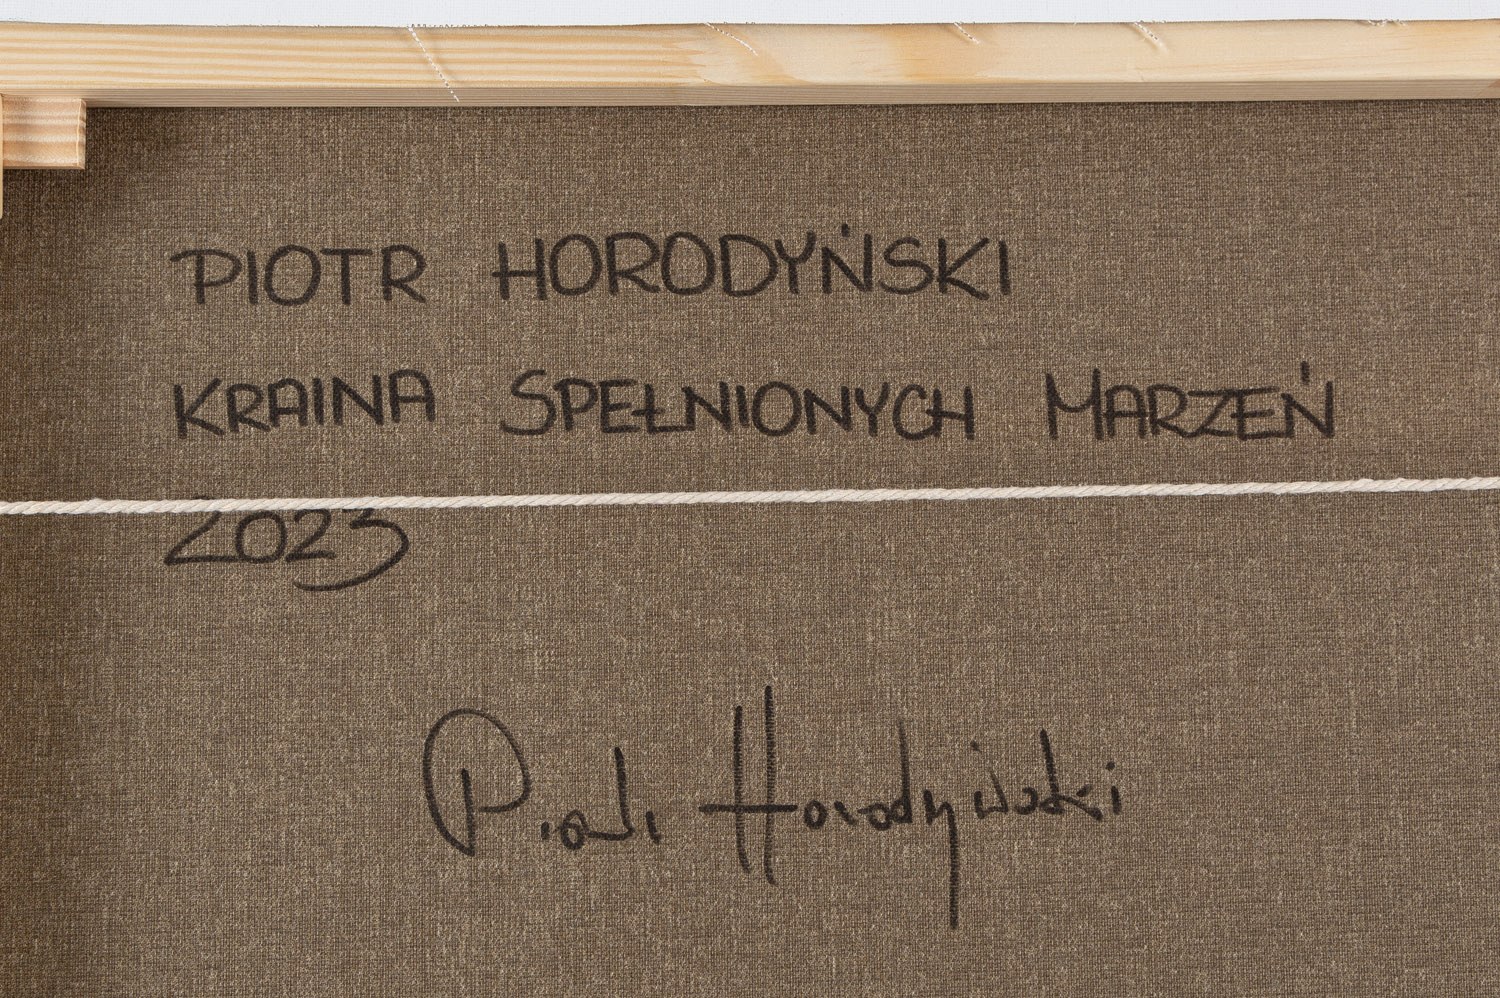 PIOTR HORODYŃSKI
KRAINA SPEŁNIONYCH MARZEŃ
2023
Piotr Horodyński